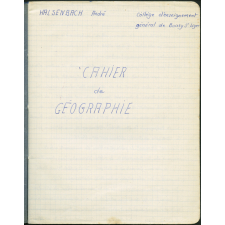 WALSENBACH André
collège d'enseignement
général de Bussy
CAHIER
de
GÉOGRAPHIE